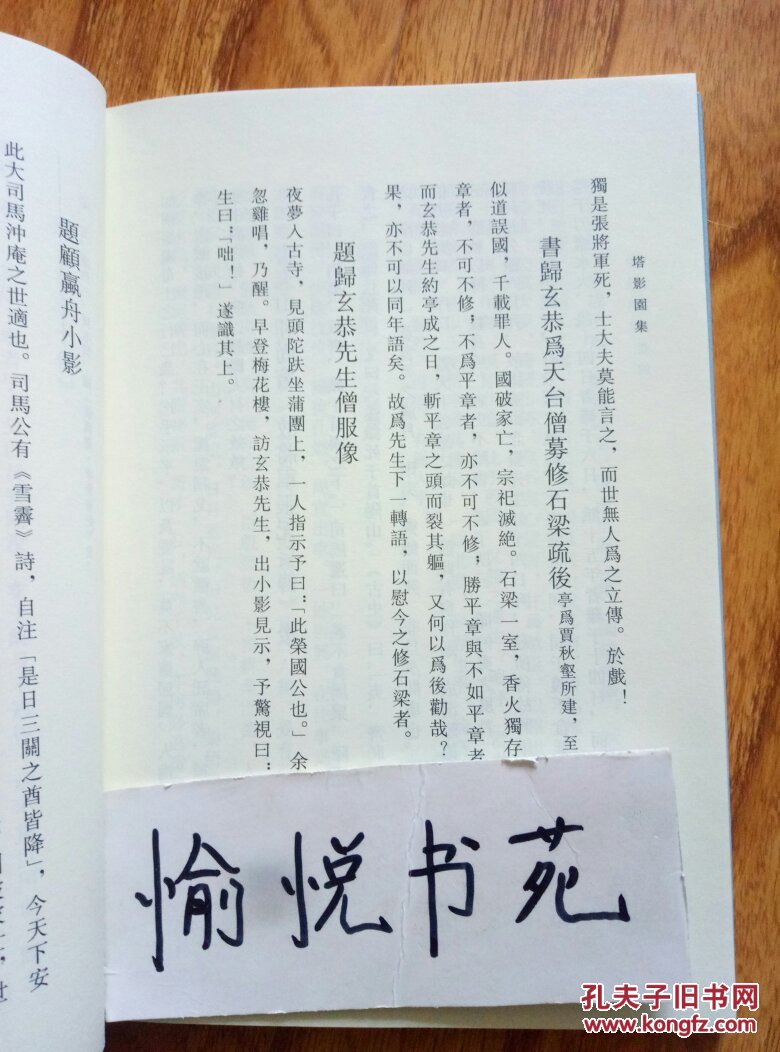 塔影園集
獨是張將軍死，士大夫莫能言之，而世無人爲之立傳。於戲！
書歸玄恭爲天台僧募修石梁疏後 亭爲賈秋壑所建，至
似道誤國，千載罪人。國破家亡，宗祀滅絶。石梁一室，香火獨存
章者，不可不修；不爲平章者，亦不可不修；勝平章與不如平章者
而玄恭先生約亭成之日，斬平章之頭而裂其軀，又何以爲後勸哉？
果，亦不可以同年語矣。故爲先生下一轉語，以慰今之修石梁者。
題歸玄恭先生僧服像
夜夢入古寺，見頭陀趺坐蒲團上，一人指示予曰：「此榮國公也。」余
忽雞唱，乃醒。早登梅花樓，訪玄恭先生，出小影見示，予驚視曰：
生曰：「咄！」遂識其上。
題顧贏舟小影
此大司馬沖庵之世適也。司馬公有《雪霽》詩，自注「是日三關之酋皆降」，今天下安
愉悦书苑
孔夫子旧书网
www.kongfz.com